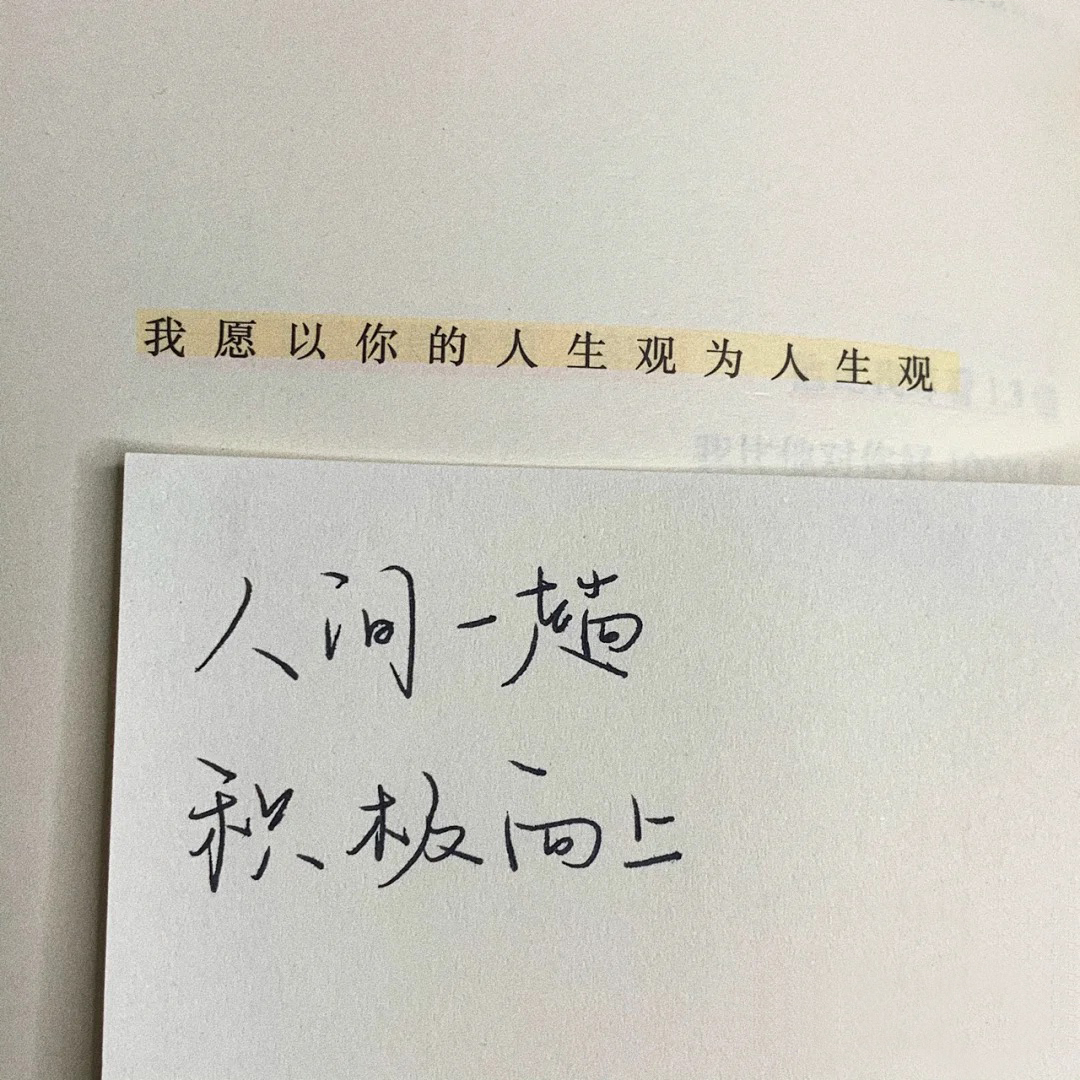 我愿以你的人生观为人生观
人间一趟
积极向上